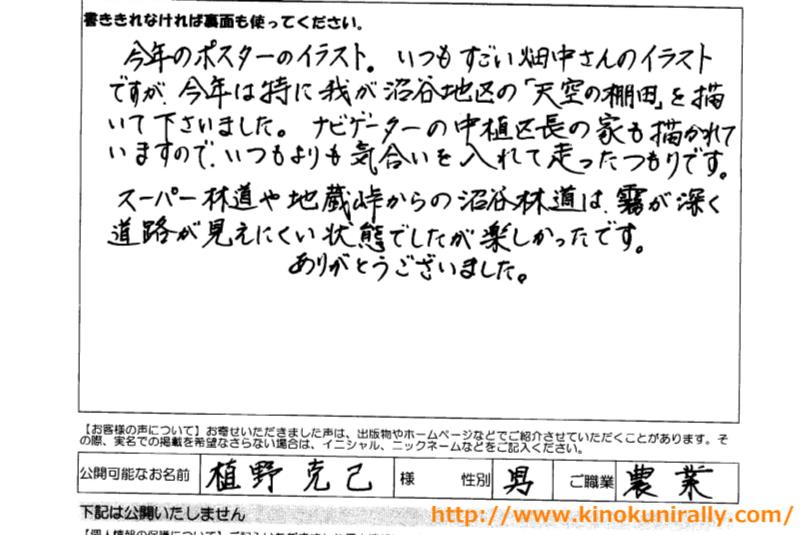 書ききれなければ裏面も使ってください。
今年のポスターのイラスト。いつもすごい畑中さんのイラスト
ですが、今年は特に我が沼谷地区の「天空の棚田」を描
いて下さいました。ナビゲーターの中植区長の家も描かれて
いますので、いつもよりも気合いを入れて走ったつもりです。
スーパー林道や地蔵峠からの沼谷林道は、霧が深く
道路が見えにくい状態でしたが楽しかったです。
ありがとうございました。
【お客様の声について】お寄せいただきました声は、出版物やホームページなどでご紹介させていただくことがあります。そ
の際、実名での掲載を希望なさらない場合は、イニシャル、ニックネームなどをご記入ください。
公開可能なお名前 植野克己 様 性別 男 ご職業 農業
下記は公開いたしません
http://www.kinokunirally.com/